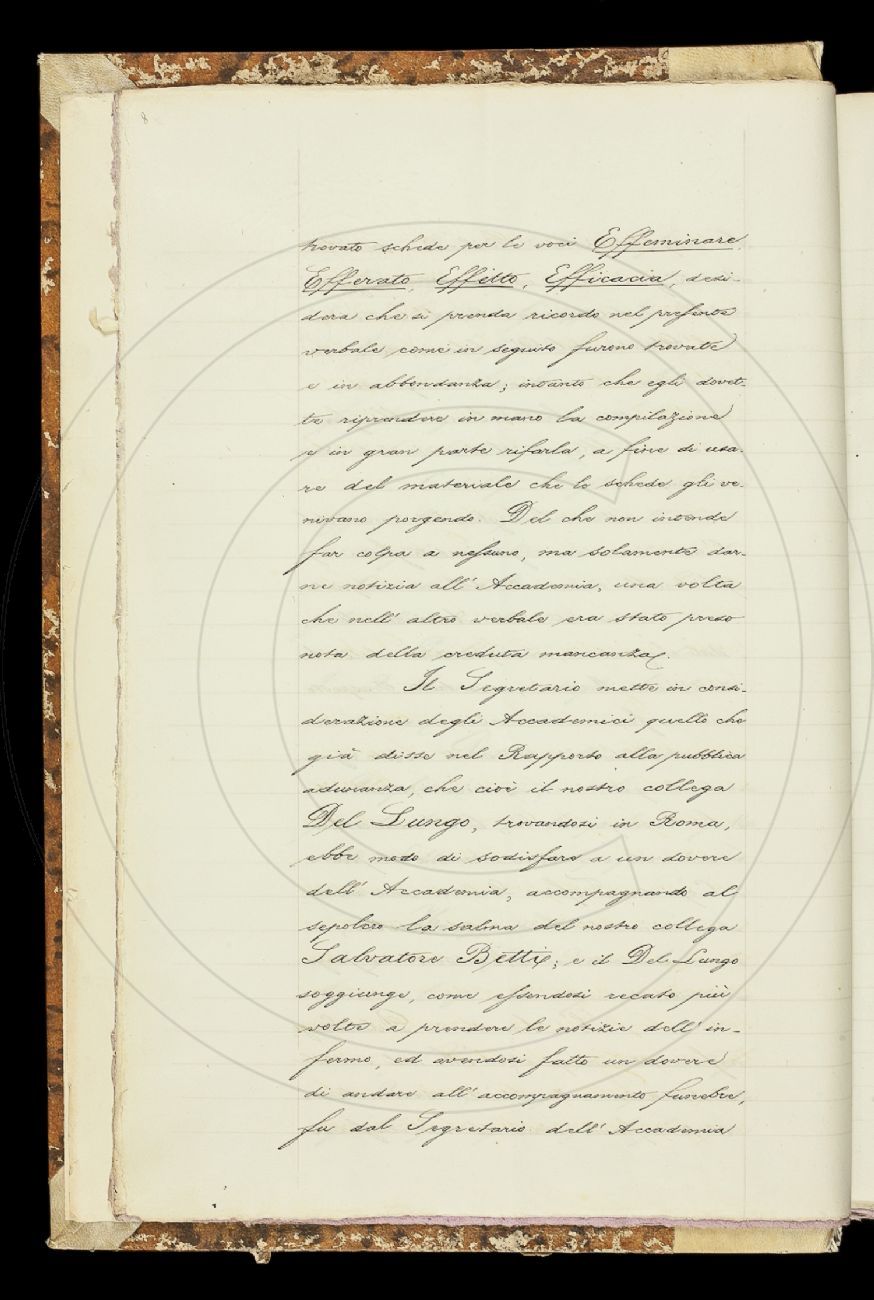 8
trovato schede per le voci Effeminare,
Efferato, Effetto, Efficacia, desi-
dera che si prenda ricordo nel presente
verbale come in seguito furono trovate
e in abbondanza; intanto che egli dovet-
te riprendere in mano la compilazione
e in gran parte rifarla, a fine di usa-
re del materiale che le schede gli ve-
nivano porgendo. Del che non intende
far colpa a nessuno, ma solamente dar-
ne notizia all' Accademia, una volta
che nell' altro verbale era stato preso
nota della creduta mancanza.
Il Segretario mette in consi-
derazione degli Accademici quello che
già disse nel Rapporto alla pubblica
adunanza, che cioè il nostro collega
Del Lungo, trovandosi in Roma,
ebbe modo di sodisfare a un dovere
dell' Accademia, accompagnando al
sepolcro la salma del nostro collega
Salvatore Betti; e il Del Lungo
soggiunge, come essendosi recato più
volte a prendere le notizie dell' in-
fermo, ed avendosi fatto un dovere
di andare all' accompagnamento funebre,
fu dal Segretario dell' Accademia